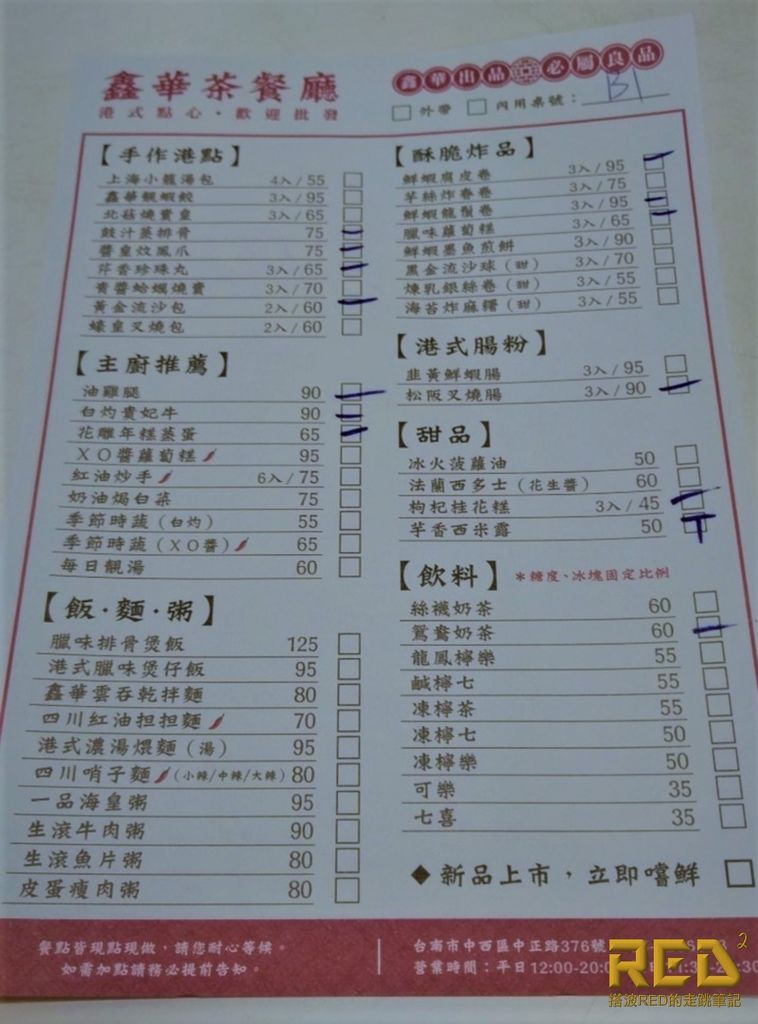 鑫華茶餐廳
港式點心・歡迎批發
鑫華出品 必屬良品
外帶 內用桌號：B1
【手作港點】
上海小籠湯包 4入/55
鑫華靚蝦餃 3入/95
北菇燒賣皇 3入/65
豉汁蒸排骨 75
醬皇炆鳳爪 75
芹香珍珠丸 3入/65
青醬蛤蠣燒賣 3入/70
黃金流沙包 2入/60
蠔皇叉燒包 2入/60
【主廚推薦】
油雞腿 90
白灼貴妃牛 90
花雕年糕蒸蛋 65
XO醬蘿蔔糕 95
紅油炒手 6入/75
奶油焗白菜 75
季節時蔬（白灼） 55
季節時蔬（XO醬） 65
每日靚湯 60
【飯・麵・粥】
臘味排骨煲飯 125
港式臘味煲仔飯 95
鑫華雲吞乾拌麵 80
四川紅油担担麵 70
港式濃湯煨麵（湯） 95
四川哨子麵（小辣/中辣/大辣） 80
一品海皇粥 95
生滾牛肉粥 90
生滾魚片粥 80
皮蛋瘦肉粥 80
【酥脆炸品】
鮮蝦腐皮卷 3入/95
芋絲炸春卷 3入/75
鮮蝦龍鬚卷 3入/95
臘味蘿蔔糕 3入/65
鮮蝦墨魚煎餅 3入/90
黑金流沙球（甜） 3入/70
煉乳銀絲卷（甜） 3入/55
海苔炸麻糬（甜） 3入/55
【港式腸粉】
韭黃鮮蝦腸 3入/95
松阪叉燒腸 3入/90
【甜品】
冰火菠蘿油 50
法蘭西多士（花生醬） 60
枸杞桂花糕 3入/45
芋香西米露 50
【飲料】 *糖度、冰塊固定比例
絲襪奶茶 60
鴛鴦奶茶 60
龍鳳檸樂 55
鹹檸七 55
凍檸茶 55
凍檸七 50
凍檸樂 50
可樂 35
七喜 35
◆新品上市，立即嚐鮮
餐點皆現點現做，請您耐心等候。
如需加點請務必提前告知。
台南市中西區中正路376號
營業時間：平日12:00-20:0
RED²
搭波RED的走跳筆記